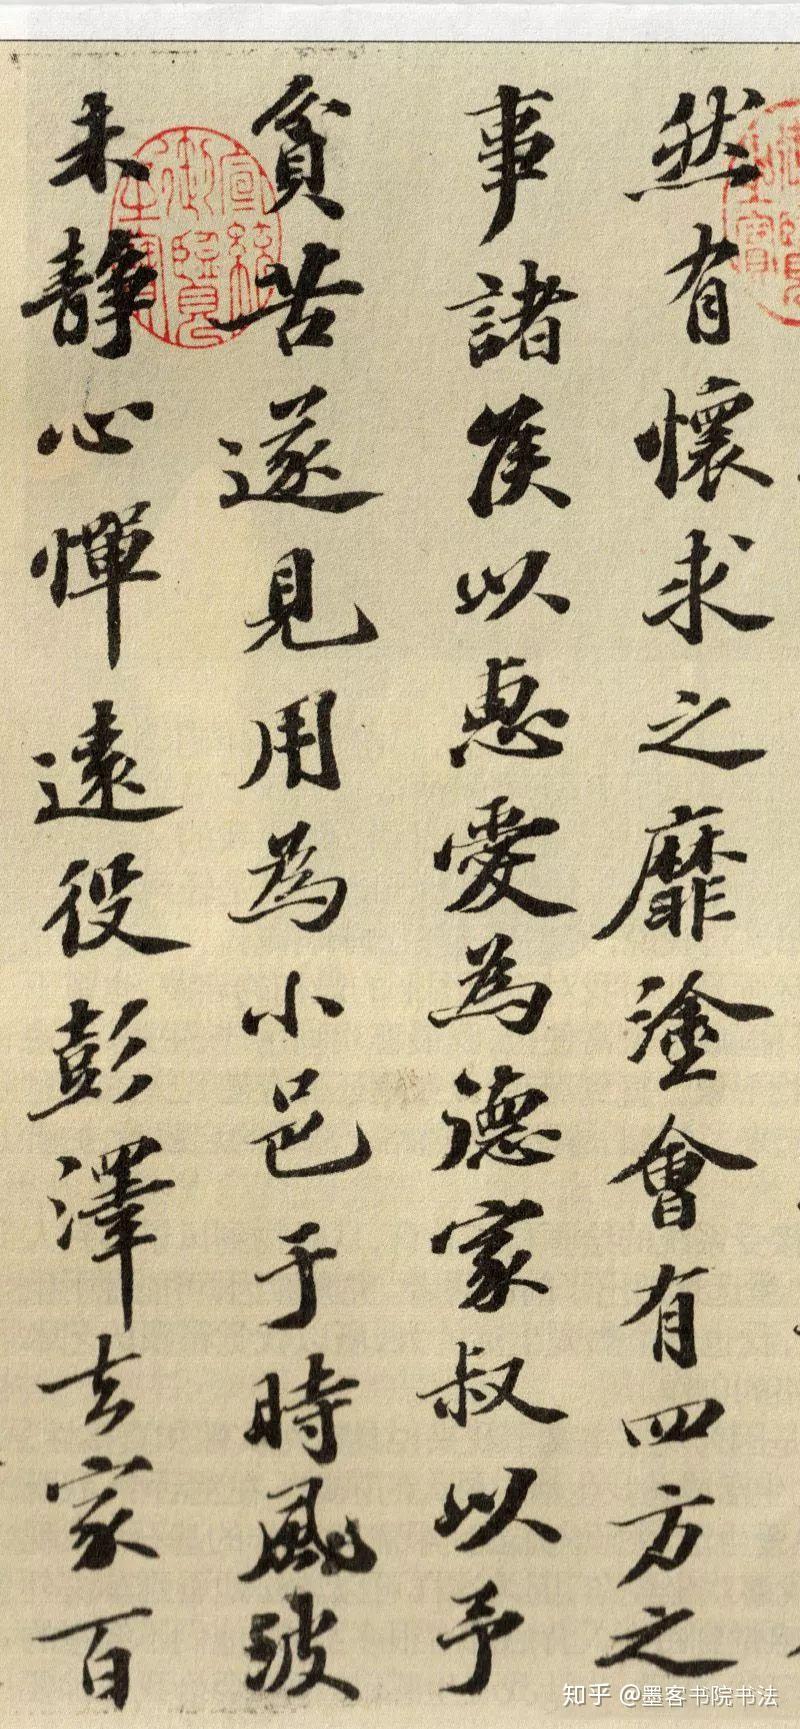 然有懷求之靡塗會有四方之
事諸侯以惠愛為德家叔以予
貧苦遂見用為小邑于時風波
未靜心憚遠役彭澤去家百
宣統御覽之寶
知乎 @墨客书院书法